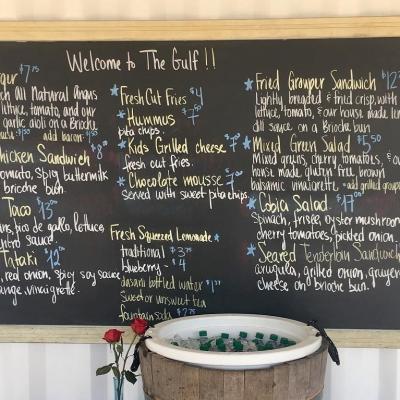 Welcome to The Gulf!!
urger $7.75
ch all Natural angus
lettuce, tomato, and our
garlic aioli on a Brioche
add bacon
Chicken Sandwich
tomato, Spicy buttermilk
brioche bun.
Taco
pico de gallo, lettuce
Tataki
red onion, spicy soy sauce,
vinaigrette.
Fresh Cut Fries $4
Hummus
pita chips.
Kids Grilled cheese
fresh cut fries.
Chocolate mousse
served with sweet pita chips.
Fresh Squeezed Lemonade
traditional
blueberry - $4
dasani bottled water
Sweet or unsweet tea
fountain soda
Fried Grouper Sandwich $12
Lightly breaded & fried crisp, with
lettuce, tomato, and our house made lem
dill sauce on a Brioche bun
Mixed Green Salad
Mixed greens, cherry tomatoes, & ou
house made gluten free, brown
balsamic vinaigrette. add grilled grouper
Cobia Salad
Spinach, frisee, oyster mushroom
cherry tomatoes, pickled onion.
Seared Tenderloin Sandwich
arugula, grilled onion, gruyere
cheese on Brioche bun.